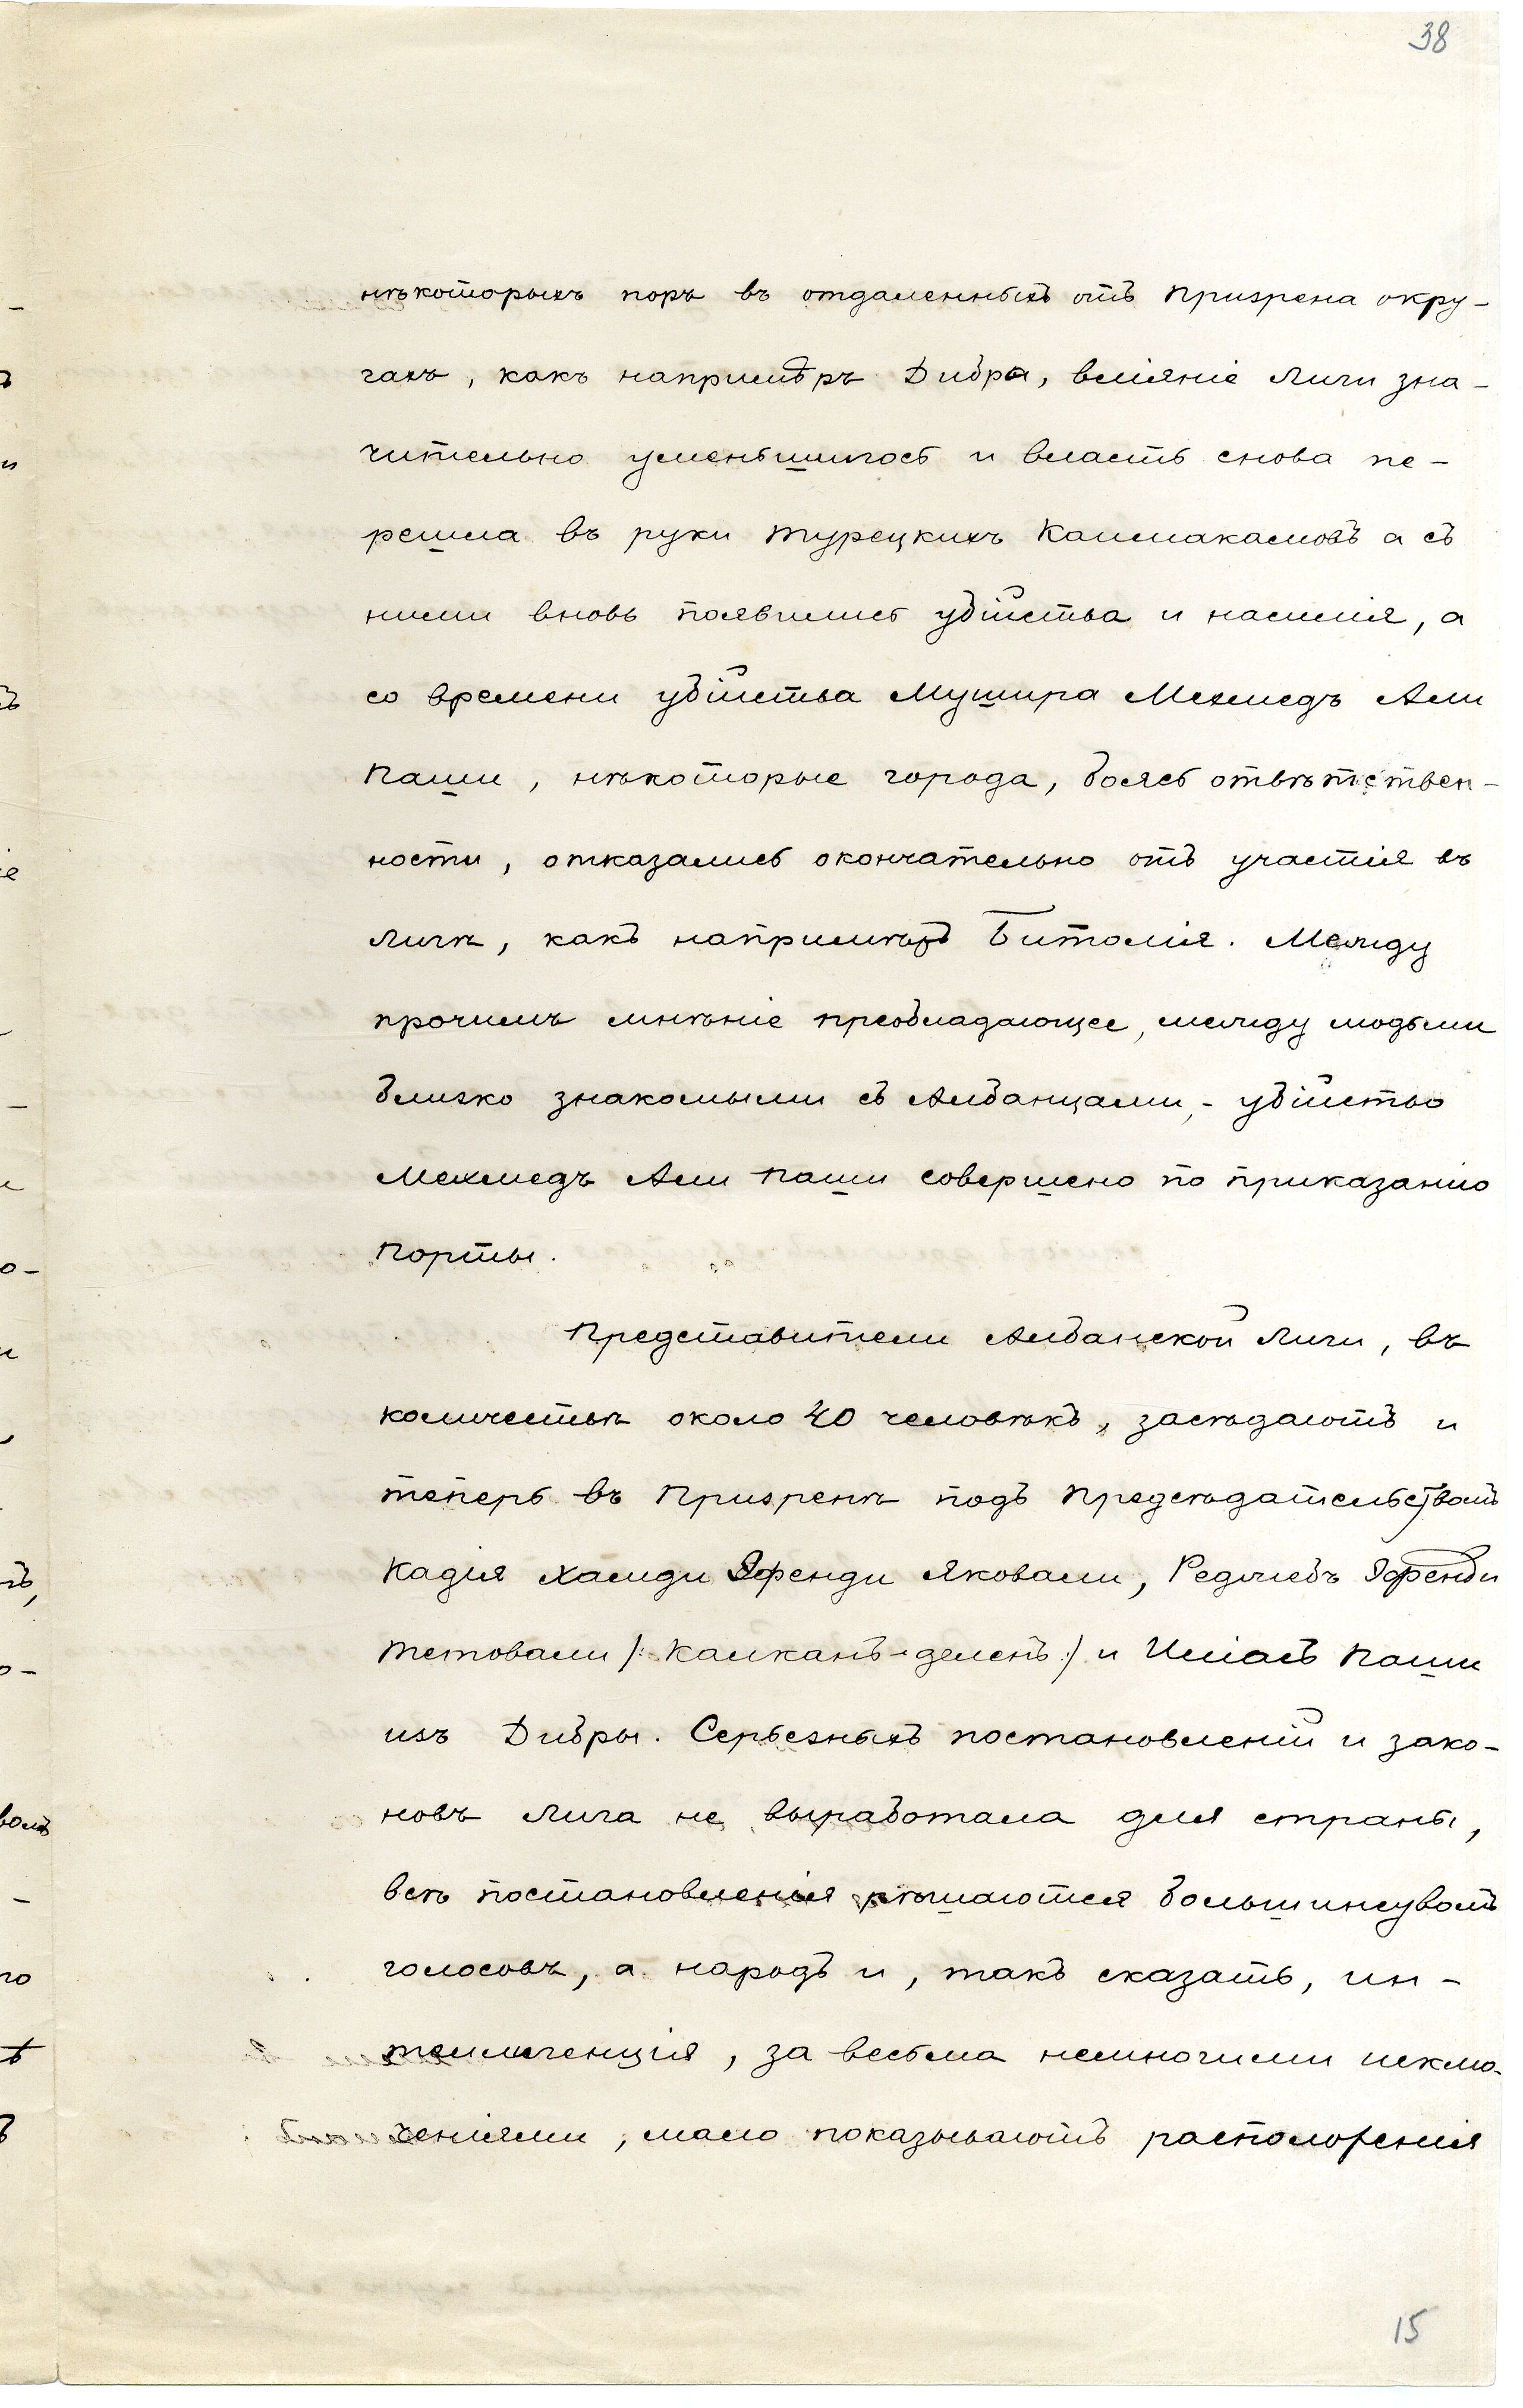 38
нѣкоторыхъ поръ въ отдаленныхъ отъ Призрена окру-
гахъ, какъ напримѣръ Дибра, вліяніе Лиги зна-
чительно уменьшилось и власть снова пе-
решла въ руки турецкихъ Каимакамовъ а съ
ними вновь появились убійства и насилія, а
со времени убійства Мушира Мехмедъ Али
Паши, нѣкоторые города, боясь отвѣтствен-
ности, отказались окончательно отъ участія въ
Лигѣ, какъ напримѣръ Битолія. Между
прочимъ мнѣніе преобладающее, между людьми
близко знакомыми съ Албанцами,- убійство
Мехмедъ Али Паши совершено по приказанію
Порты.
Представители Албанской Лиги, въ
количествѣ около 40 человѣкъ, засѣдаютъ и
теперь въ Призренѣ подъ предсѣдательствомъ
Кадія Хамди Эфенди Яковали, Реджебъ Эфенди
Тетовали /:Калканъ-деленъ:/ и Иліасъ Паши
изъ Дибры. Серьезныхъ постановленій и зако-
новъ Лига не выработала для страны,
всѣ постановленія рѣшаются большинствомъ
голосовъ, а народъ и, такъ сказать, ин-
теллигенція, за весьма немногими исклю-
ченіями, мало показываютъ расположенія
15